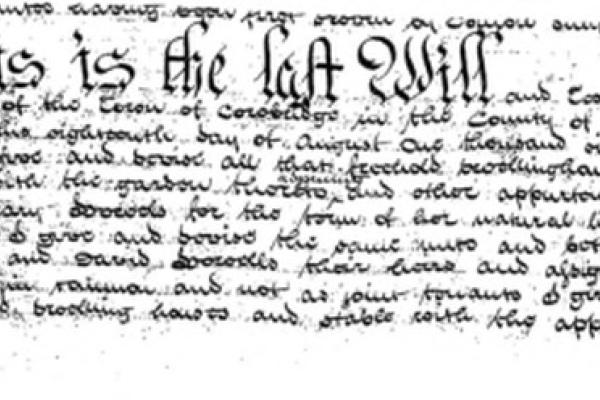 having been first sworn by Comon
is is the last Will and Tes
of the Town of Corobridge in the County of
eighteenth day of August One thousand ei
give and devise all that freehold dwellinghou
with the garden thereto adjoining and other appurten
ary for the term of her natural li
I give and devise the same unto and bet
and David their heirs and assig
in common and not as joint tenants I giv
dwelling houses and stable with the app